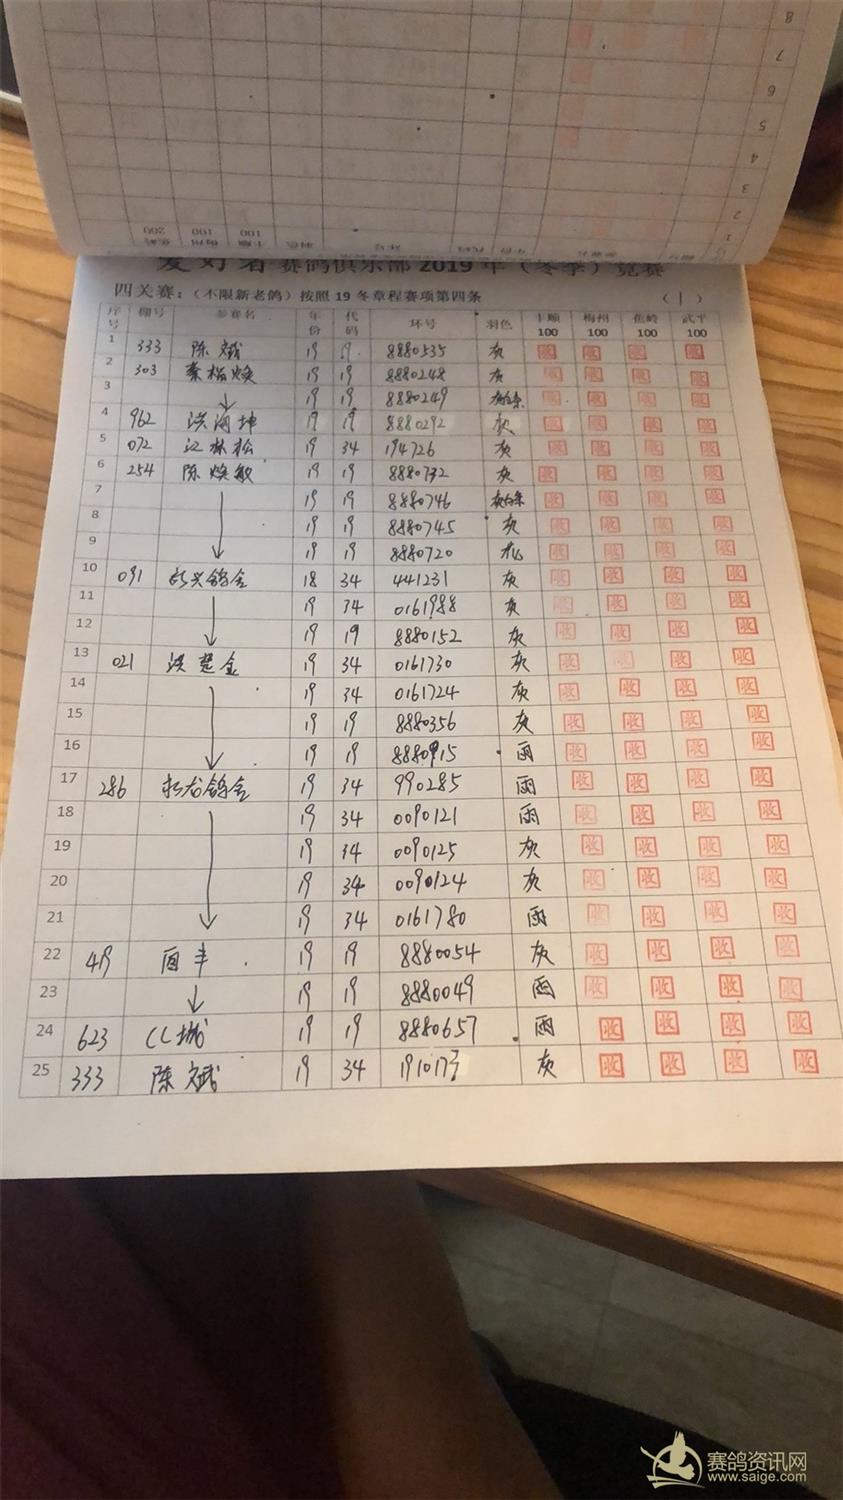 爱好者赛鸽俱乐部2019年（冬季）竞赛
四关赛：（不限新老鸽）按照19冬章程赛项第四条 （1）
序号 棚号 参赛名 年份 代码 环号 羽色 丰顺100 梅州100 蕉岭100 武平100
1 333 陈斌 19 19 8880535 灰
2 303 19 19 8880248 灰
3 ↓ 19 19 8880249
4 962 洪海坤 19 19 8880292 灰
5 072 江林松 19 34 194726 灰
6 254 陈焕敏 19 19 8880732 灰
7 19 19 8880746 灰白条
8 19 19 8880745 灰
9 ↓ 19 19 8880720
10 091 18 34 441231 灰
11 19 34 0161988 灰
12 ↓ 19 19 8880152 灰
13 021 洪楚金 19 34 0161730 灰 收 收 收 收
14 19 34 0161724 灰 收 收 收 收
15 19 19 8880356 灰 收 收 收 收
16 ↓ 19 19 8880915 雨 收 收 收 收
17 286 19 34 990285 雨 收 收 收 收
18 19 34 0090121 雨 收 收 收 收
19 19 34 0090125 灰 收 收 收 收
20 19 34 0090124 灰 收 收 收 收
21 ↓ 19 34 0161780 雨 收 收 收 收
22 419 19 19 8880054 灰 收 收 收 收
23 ↓ 19 19 8880049 雨 收 收 收 收
24 623 CC城 19 19 8880657 雨 收 收 收 收
25 333 陈斌 19 34 灰 收 收 收 收
赛鸽资讯网
www.saige.com